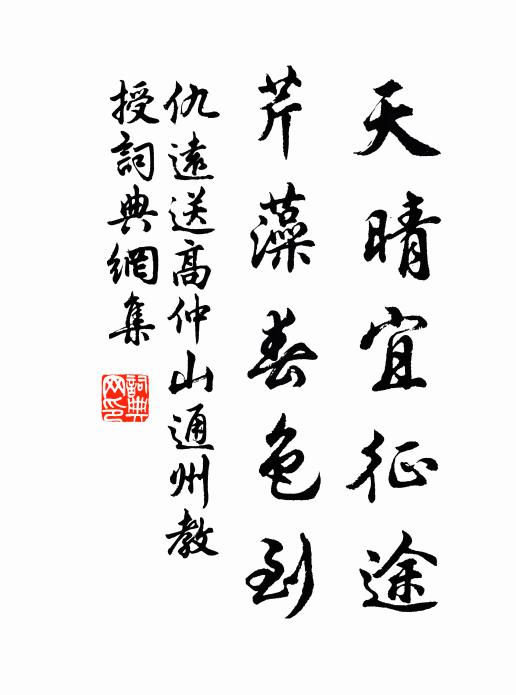 天晴宜征途
芹藻春色到
仇遠送高仲山通州教
授詞典網集
詞典网印